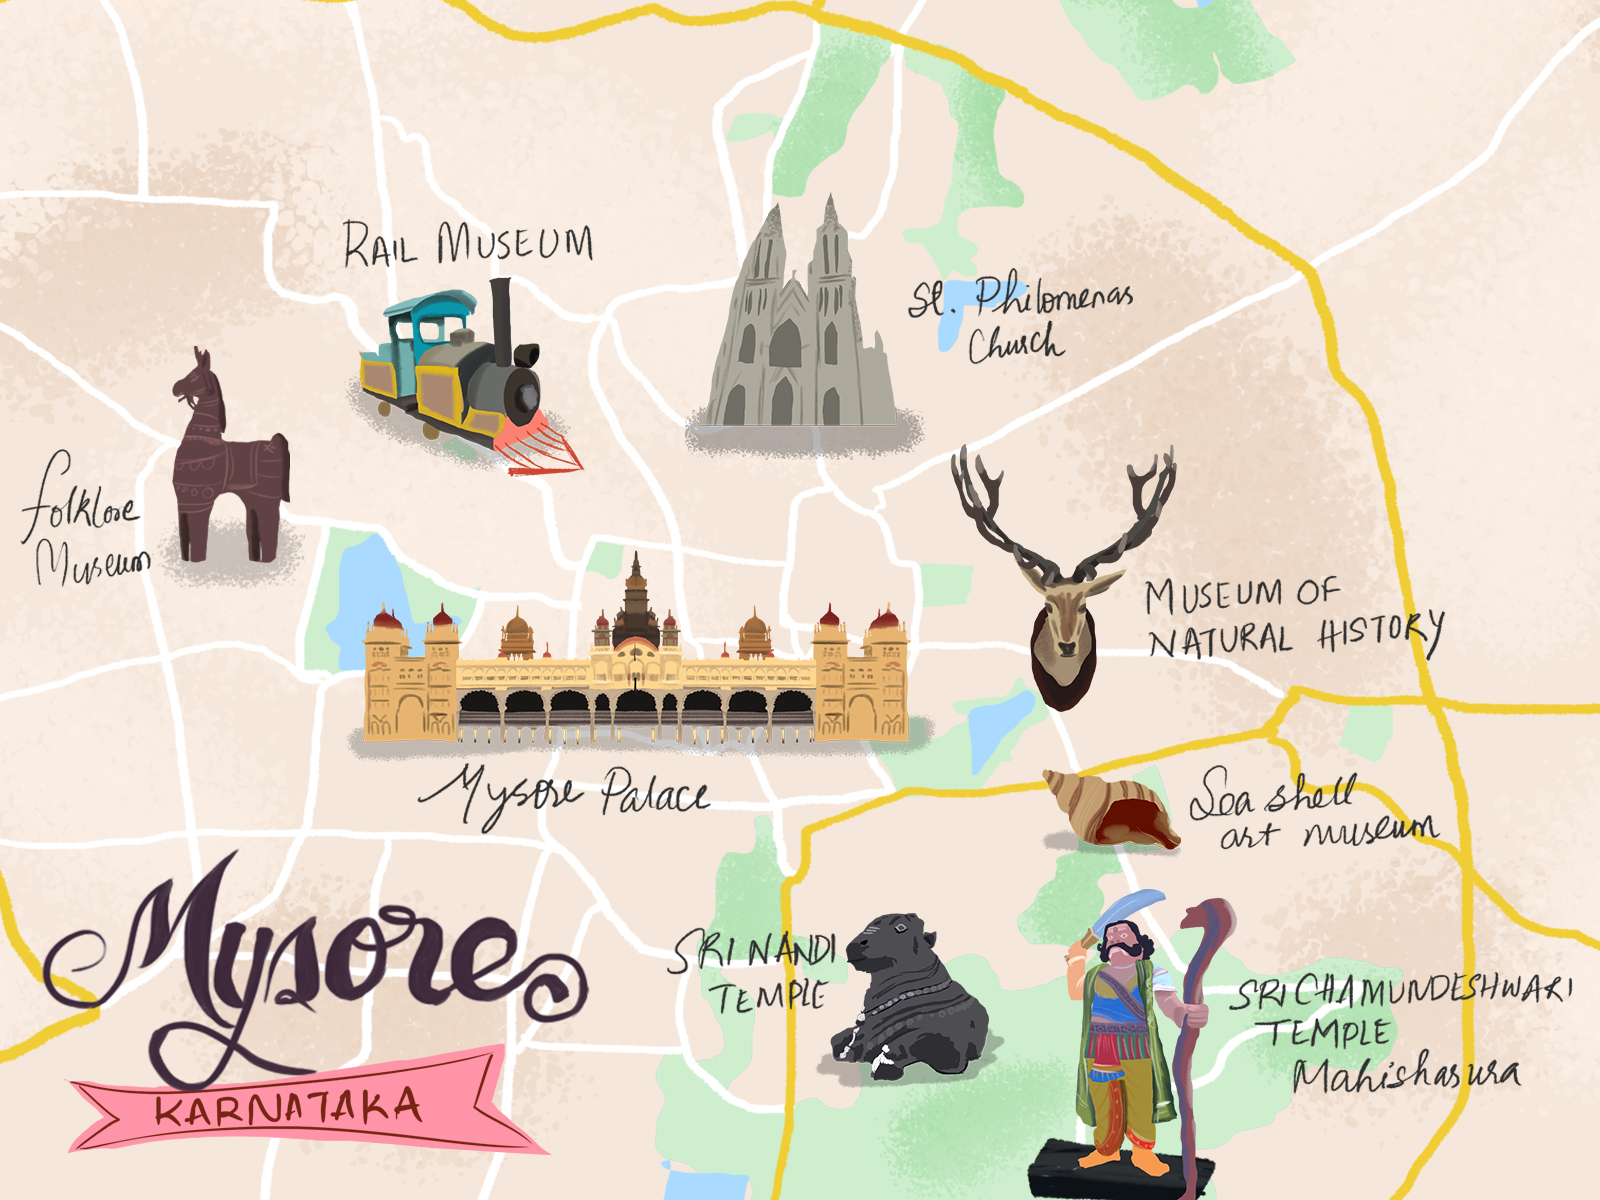 RAIL MUSEUM
St. Philomenas
Church
Folklore
Museum
MUSEUM OF
NATURAL HISTORY
Mysore Palace
Sea shell
art museum
Mysore
KARNATAKA
SRI NANDI
TEMPLE
SRI CHAMUNDESHWARI
TEMPLE
Mahishasura